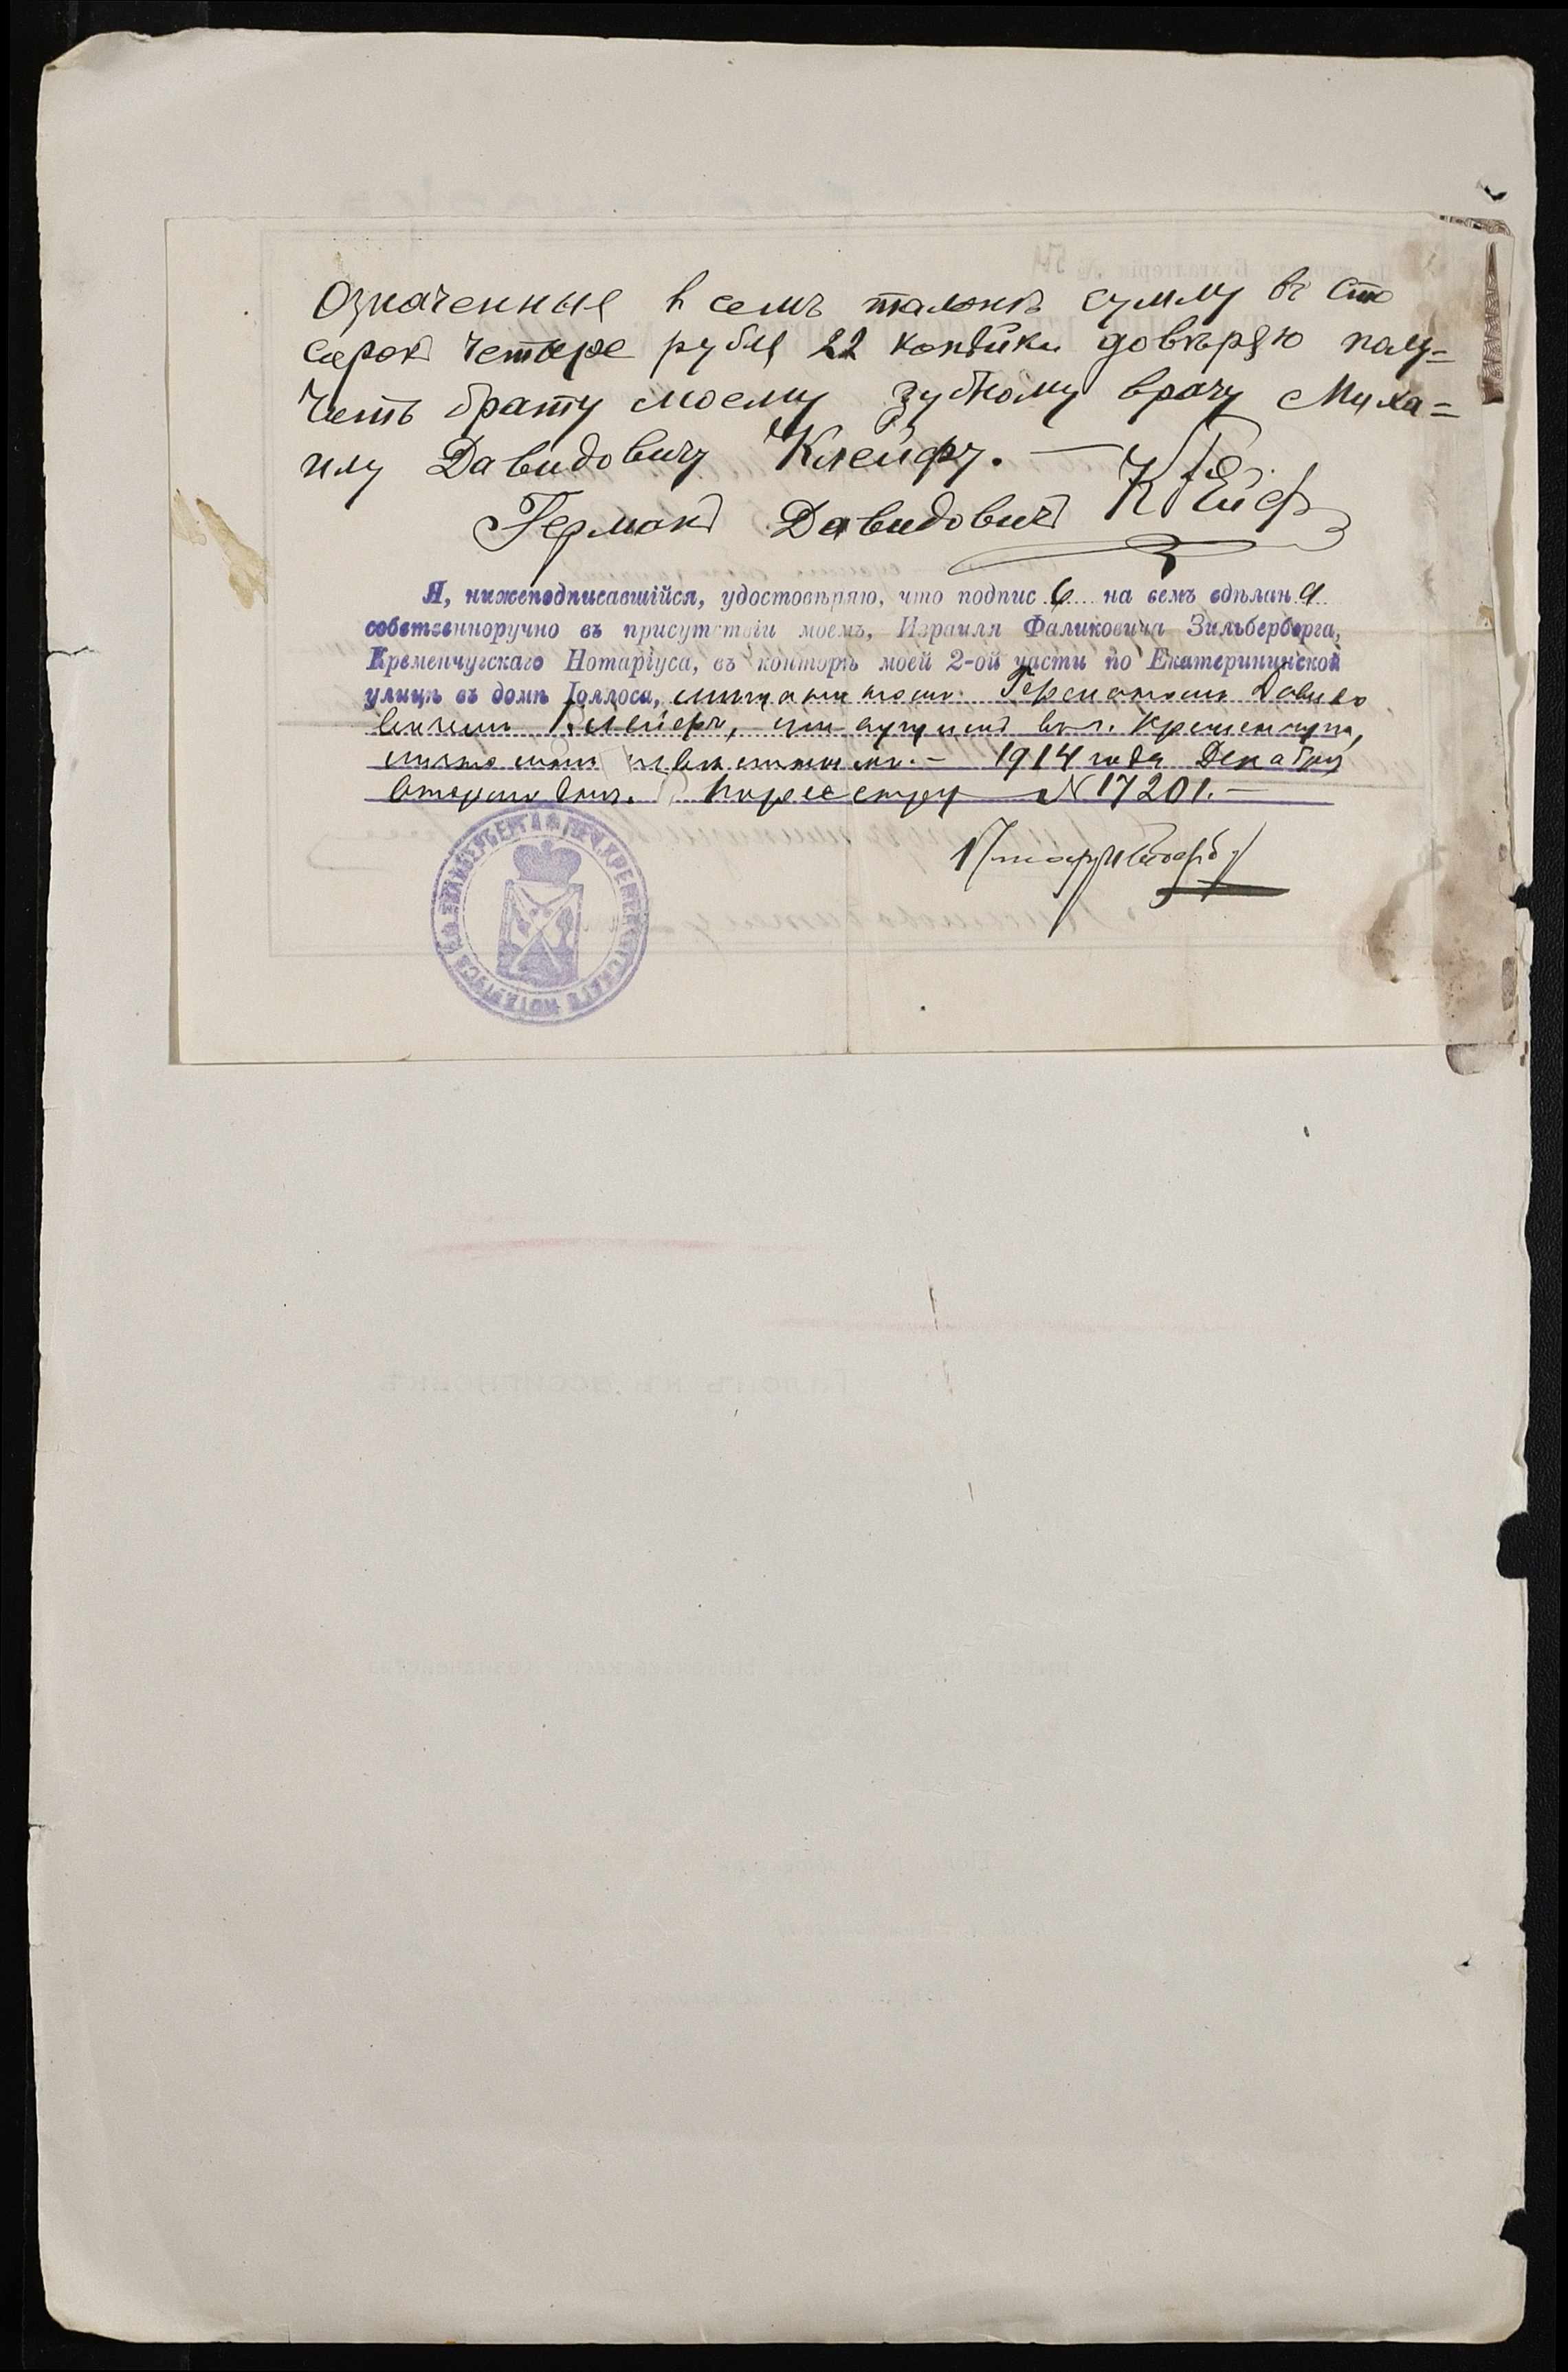 Означенныя в семъ талонѣ сумму въ сто
сорокъ четыре рубля 22 копѣйки довѣряю полу=
чить брату моему зубному врачу Миха=
илу Давидовичу Клейфу. —
Германъ Давидовичъ Клейф
Я, нижеподписавшійся, удостовѣряю, что подпись на семъ сдѣлана
собственноручно въ присутствіи моемъ, Израиля Фаликовича Зильберберга,
Кременчугскаго Нотаріуса, въ конторѣ моей 2-ой части по Екатерининской
улицѣ въ домѣ Іоллоса, Германомъ Давидо
вичемъ Клейфъ, живущимъ въ г. Кременчугѣ,
1914 года Декабря
второго дня. По реестру № 17201. —
Нотаріусъ